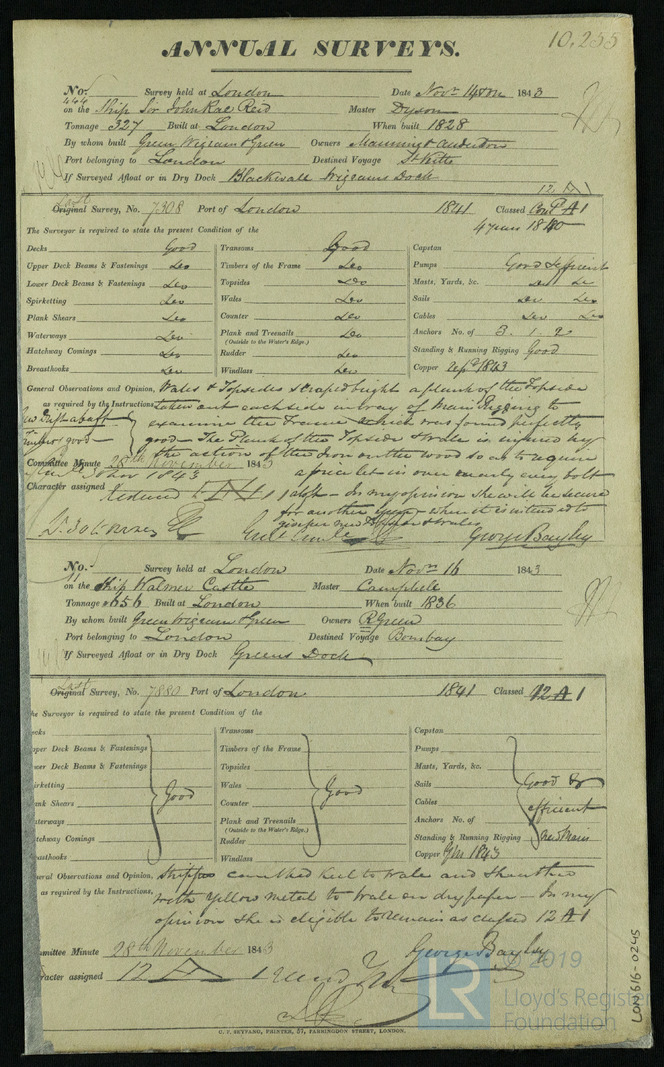 10.255
ANNUAL SURVEYS.
No. 444 Survey held at London Date Novr 14th 1843
on the Ship Sir John Rae Reid Master Dyson
Tonnage 327 Built at London When built 1828
By whom built Green Wigram & Green Owners Manning & Anderdon
Port belonging to London Destined Voyage St Kitts
If Surveyed Afloat or in Dry Dock Blackwall Wigrams Dock
12 A 1
Last
Original Survey, No. 7308 Port of London 1841 Classed Contd A 1
The Surveyor is required to state the present Condition of the 4 years 1840
Decks Good Transoms Good Capstan
Upper Deck Beams & Fastenings Do Timbers of the Frame Do Pumps Good & efficient
Lower Deck Beams & Fastenings Do Topsides Do Masts, Yards, &c. Do Do
Spirketting Do Wales Do Sails Do Do
Plank Shears Do Counter Do Cables Do Do
Waterways Do Plank and Treenails Do Anchors No. of 3. 1. 2
(Outside to the Water's Edge.)
Hatchway Comings Do Rudder Do Standing & Running Rigging Good
Breasthooks Do Windlass Do Copper Sepr 1843
General Observations and Opinion, Wales & Topsides scraped bright a plank of the Topside
as required by the Instructions, taken out each side in way of Main Rigging to
examine the Frame which was found perfectly
timbers good good - The Plank of the Topside & Wale is injured by
the action of the Iron on the wood so as to require
Committee Minute 28th November 1843
a piece let in over nearly every bolt
Character assigned A 1 aloft - In my opinion she will be secure
for another year when it is intended to
give her new Topsides & Wales
George Bayley
No. Survey held at London Date Novr 16 1843
on the Ship Walmer Castle Master Campbell
Tonnage 656 Built at London When built 1836
By whom built Green Wigram & Green Owners R Green
Port belonging to London Destined Voyage Bombay
If Surveyed Afloat or in Dry Dock Greens Dock
Last
Original Survey, No. 7880 Port of London 1841 Classed 12 A 1
he Surveyor is required to state the present Condition of the
ecks Transoms Capstan
pper Deck Beams & Fastenings Timbers of the Frame Pumps
wer Deck Beams & Fastenings Topsides Masts, Yards, &c.
irketting Good Wales Good Sails Good &
ank Shears Counter Cables efficient
aterways Plank and Treenails Anchors No. of
(Outside to the Water's Edge.)
tchway Comings Rudder Standing & Running Rigging New Main
easthooks Windlass Copper YM 1843
eral Observations and Opinion, Stripped caulked keel to wale and sheathed
as required by the Instructions, with yellow metal to Wale on dry paper - In my
opinion she is eligible to remain as classed 12 A 1
mmittee Minute 28th November 1843
George Bayley
aracter assigned 12 A 1
C. F. SEYFANG, PRINTER, 57, FARRINGDON STREET, LONDON.
LON616-0245
© 2019
LR
Lloyd's Register
Foundation